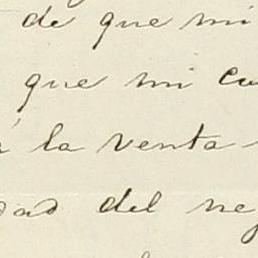 de que mi
que mi cu
a la venta
dad del ne